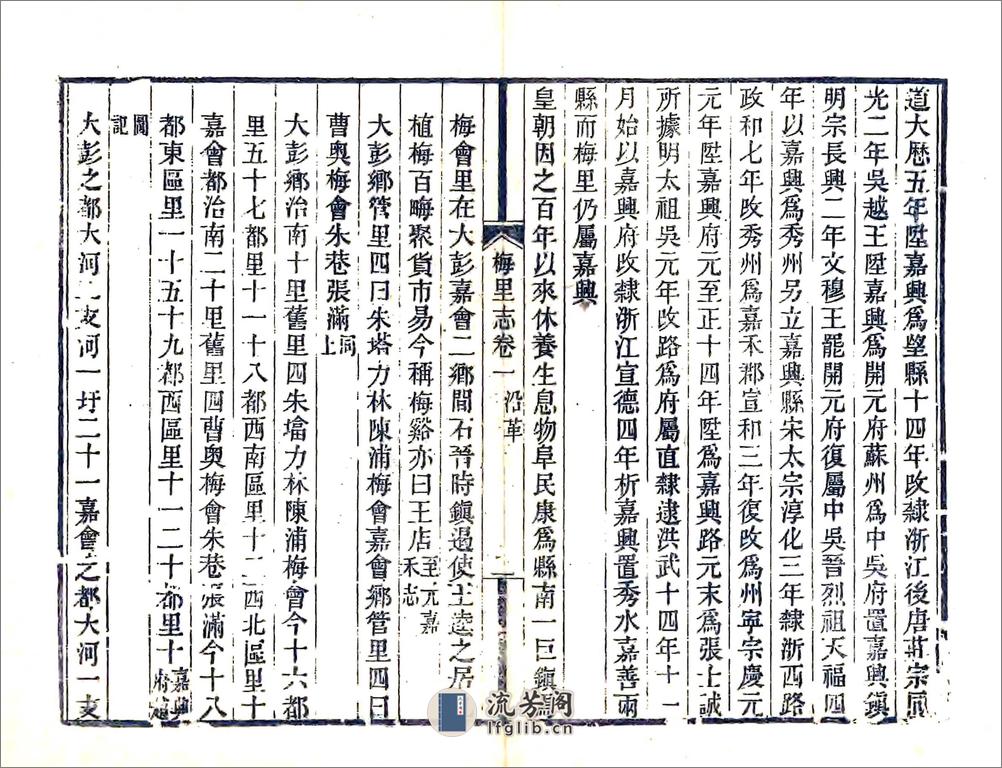 道大曆五年陞嘉興爲望縣十四年改隸浙江後唐莊宗同
光二年吳越王陞嘉興爲開元府蘇州爲中吳府置嘉興鎮
明宗長興二年文穆王罷開元府復屬中吳晉烈祖天福四
年以嘉興爲秀州另立嘉興縣宋太宗淳化三年隸浙西路
政和七年改秀州爲嘉禾郡宣和三年復改爲州寧宗慶元
元年陞嘉興府元至正十四年陞爲嘉興路元末爲張士誠
所據明太祖吳元年改路爲府屬直隸逮洪武十四年十一
月始以嘉興府改隸浙江宣德四年析嘉興置秀水嘉善兩
縣而梅里仍屬嘉興
皇朝因之百年以來休養生息物阜民康爲縣南一巨鎮焉
梅里志卷一 沿革 二
梅會里在大彭嘉會二鄉間石晉時鎮遏使王逵之居
植梅百畮聚貨市易今稱梅谿亦曰王店至元嘉禾志
大彭鄉管里四曰朱塔力林陳浦梅會嘉會鄉管里四曰
曹奧梅會朱巷張滿同上
大彭鄉治南十里舊里四朱壋力林陳浦梅會今十六都
里五十七都里十一十八都西南區里十二西北區里十
嘉會都治南二十里舊里四曹奧梅會朱巷張滿今十八
都東區里一十五十九都西區里十一二十都里十嘉興府趙
圖記
大彭之都大河二支河一圩二十一嘉會之都大河一支
流芳阁
lfglib.cn